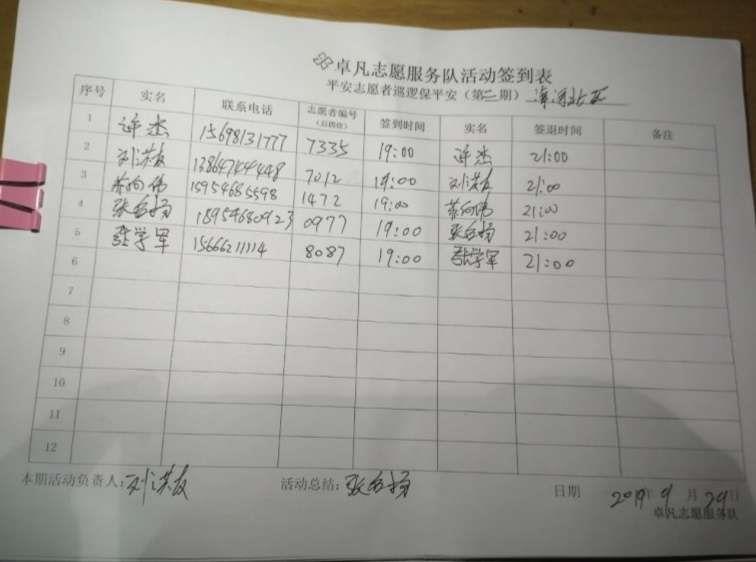 卓凡志愿服务队活动签到表
平安志愿者巡逻保平安（第三期）
序号 实名 联系电话 志愿者编号（后四位） 签到时间 实名 签退时间 备注
1 许杰 15698131777 7335 19:00 许杰 21:00
2 刘洪友 13864744448 7012 19:00 刘洪友 21:00
3 15954685598 1472 19:00 21:00
4 18954680923 0977 19:00 21:00
5 张学军 15666211114 8087 19:00 张学军 21:00
6
7
8
9
10
11
12
本期活动负责人：刘洪友 活动总结： 日期 2019年9月29日
卓凡志愿服务队